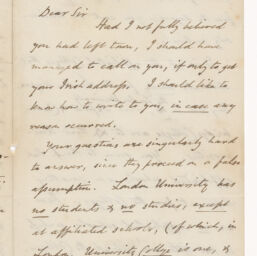 Dear Sir
Had I not fully believed
you had left town, I should have
managed to call on you, if only to get
your Irish address. I should like to
know how to write to you, in case any
reason occurred.
Your questions are singularly hard
to answer, since they proceed on a false
assumption. London University has
no students & no studies, except
at affiliated schools, (of which, in
London, University College is one, &